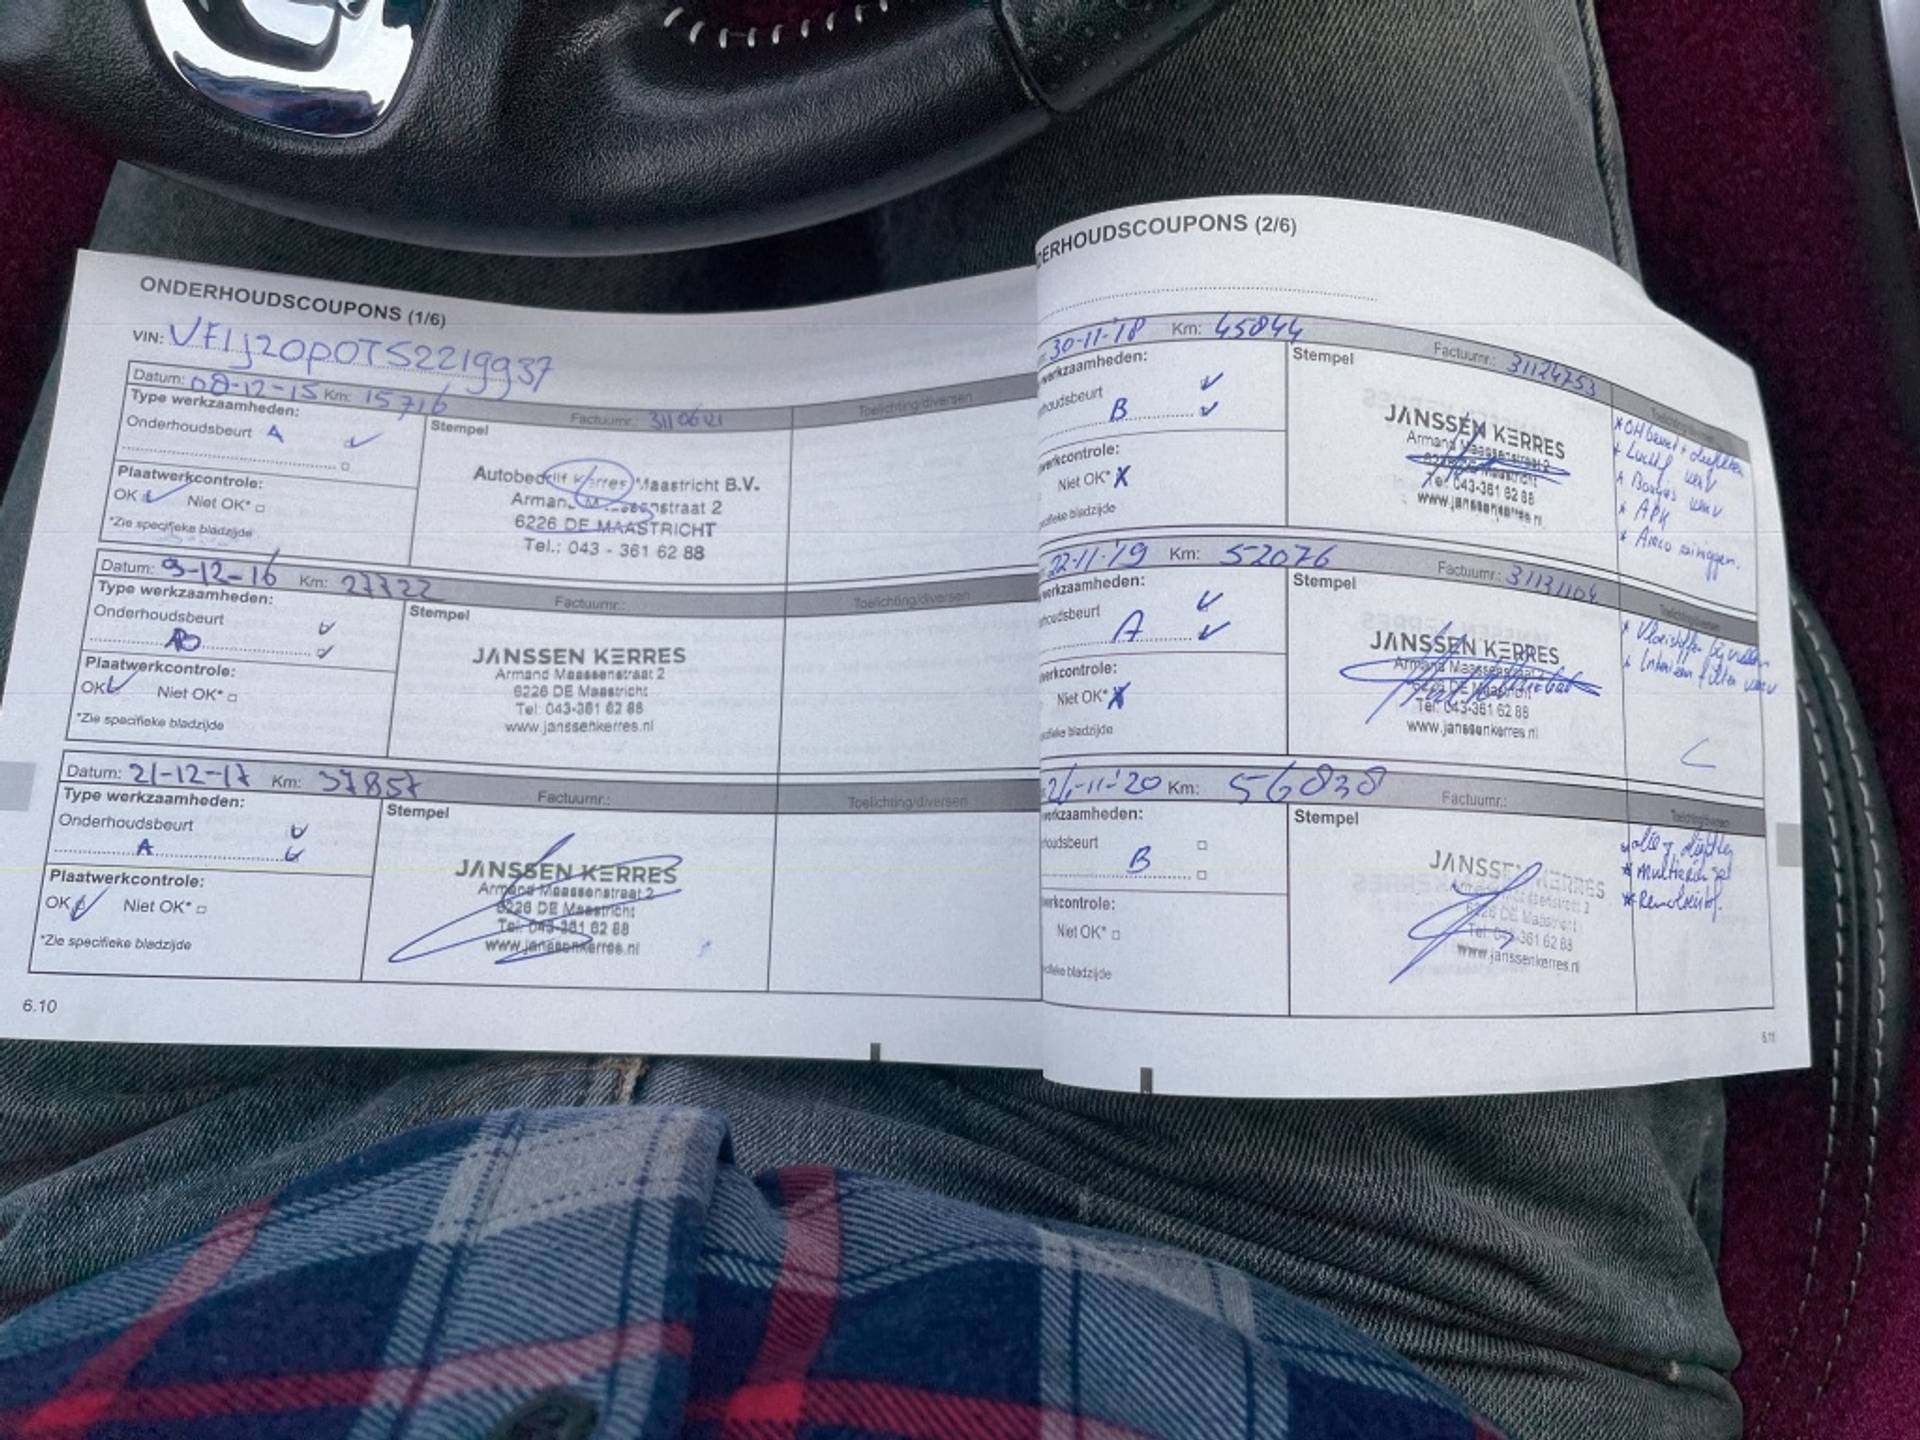 ONDERHOUDSCOUPONS (1/6)
VIN: VF1J20P0T52219937
Datum: 08-12-15 Km: 15716 Factuurnr.: Toelichting/diversen
Type werkzaamheden:
Onderhoudsbeurt A
Stempel
Autobedrijf Kerres Maastricht B.V.
Armand Maassenstraat 2
6226 DE MAASTRICHT
Tel.: 043 - 361 62 88
Plaatwerkcontrole:
OK Niet OK*
*Zie specifieke bladzijde
Datum: 9-12-16 Km: 27722 Factuurnr.: Toelichting/diversen
Type werkzaamheden:
Onderhoudsbeurt
Stempel
JANSSEN KERRES
Armand Maassenstraat 2
6226 DE Maastricht
Tel: 043-361 62 88
www.janssenkerres.nl
Plaatwerkcontrole:
OK Niet OK*
*Zie specifieke bladzijde
Datum: 21-12-17 Km: 37857 Factuurnr.: Toelichting/diversen
Type werkzaamheden:
Onderhoudsbeurt
A
Stempel
JANSSEN KERRES
Armand Maassenstraat 2
6226 DE Maastricht
Tel: 043-361 62 88
www.janssenkerres.nl
Plaatwerkcontrole:
OK Niet OK*
*Zie specifieke bladzijde
6.10
DERHOUDSCOUPONS (2/6)
30-11-'18 Km: 45844 Factuurnr.: 31124753 Toelichting/diversen
werkzaamheden:
houdsbeurt
B
Stempel
JANSSEN KERRES
Armand Maassenstraat 2
6226 DE Maastricht
Tel: 043-361 62 88
www.janssenkerres.nl
* Luchtf verv
* Bougies verv
* APK
* Airco reinigen.
werkcontrole:
Niet OK* X
ecifieke bladzijde
22-11-'19 Km: 52076 Factuurnr.: 31131104 Toelichting/diversen
werkzaamheden:
houdsbeurt
A
Stempel
JANSSEN KERRES
Armand Maassenstraat 2
6226 DE Maastricht
Tel: 043-361 62 88
www.janssenkerres.nl
* Vloeistoffen bijvullen
* Interieur filter verv
werkcontrole:
Niet OK* X
ecifieke bladzijde
-11-'20 Km: 56838 Factuurnr.: Toelichting/diversen
werkzaamheden:
houdsbeurt
B
Stempel
JANSSEN KERRES
Armand Maassenstraat 2
6226 DE Maastricht
Tel: 043-361 62 88
www.janssenkerres.nl
* Remvloeistof.
werkcontrole:
Niet OK*
ecifieke bladzijde
6.11